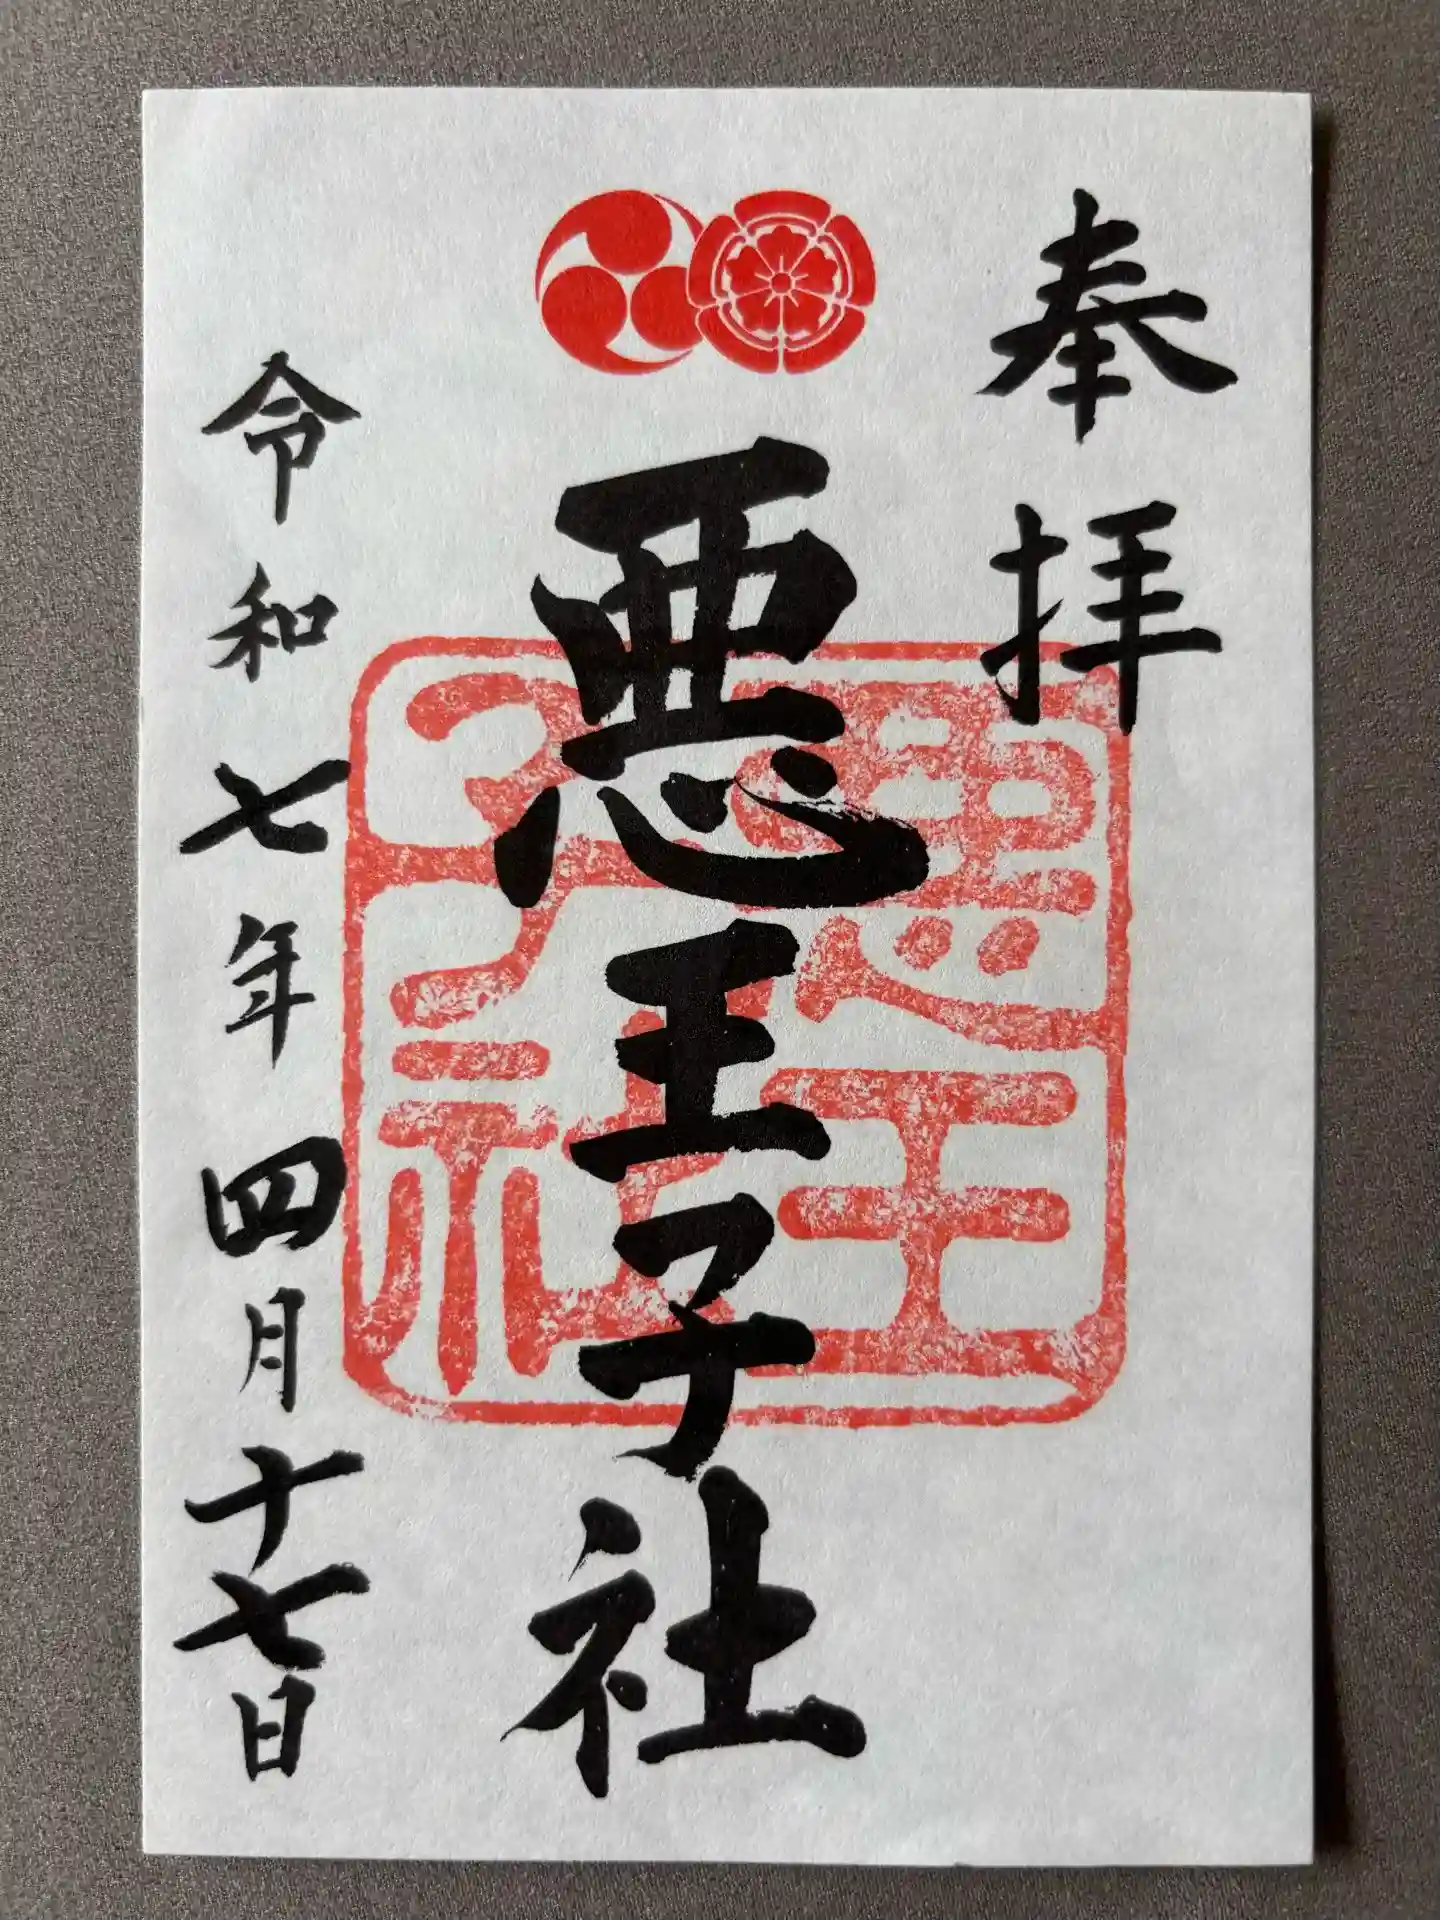 奉拝
悪王子社
悪王
子社
令和七年四月十七日